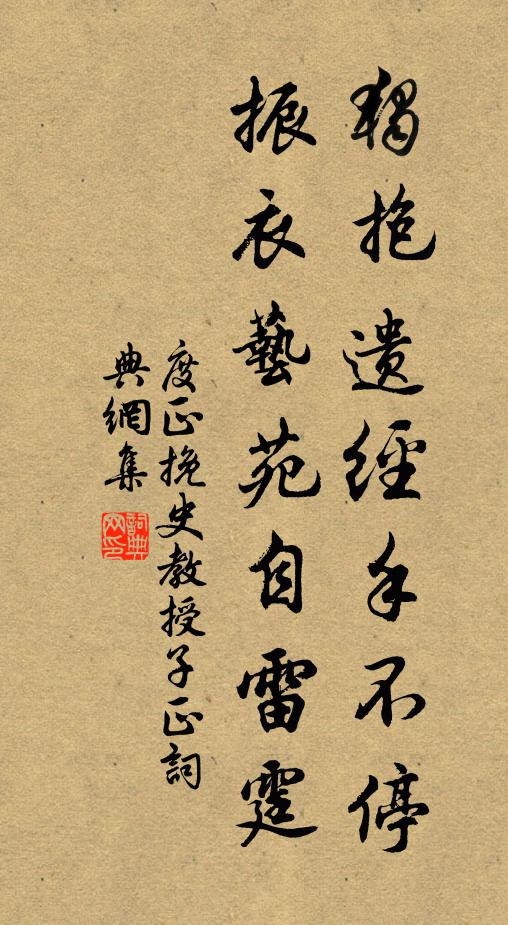 獨抱遺經手不停
振衣藝苑自雷霆
度正挽史教授子正詞
典網集
詞典網印